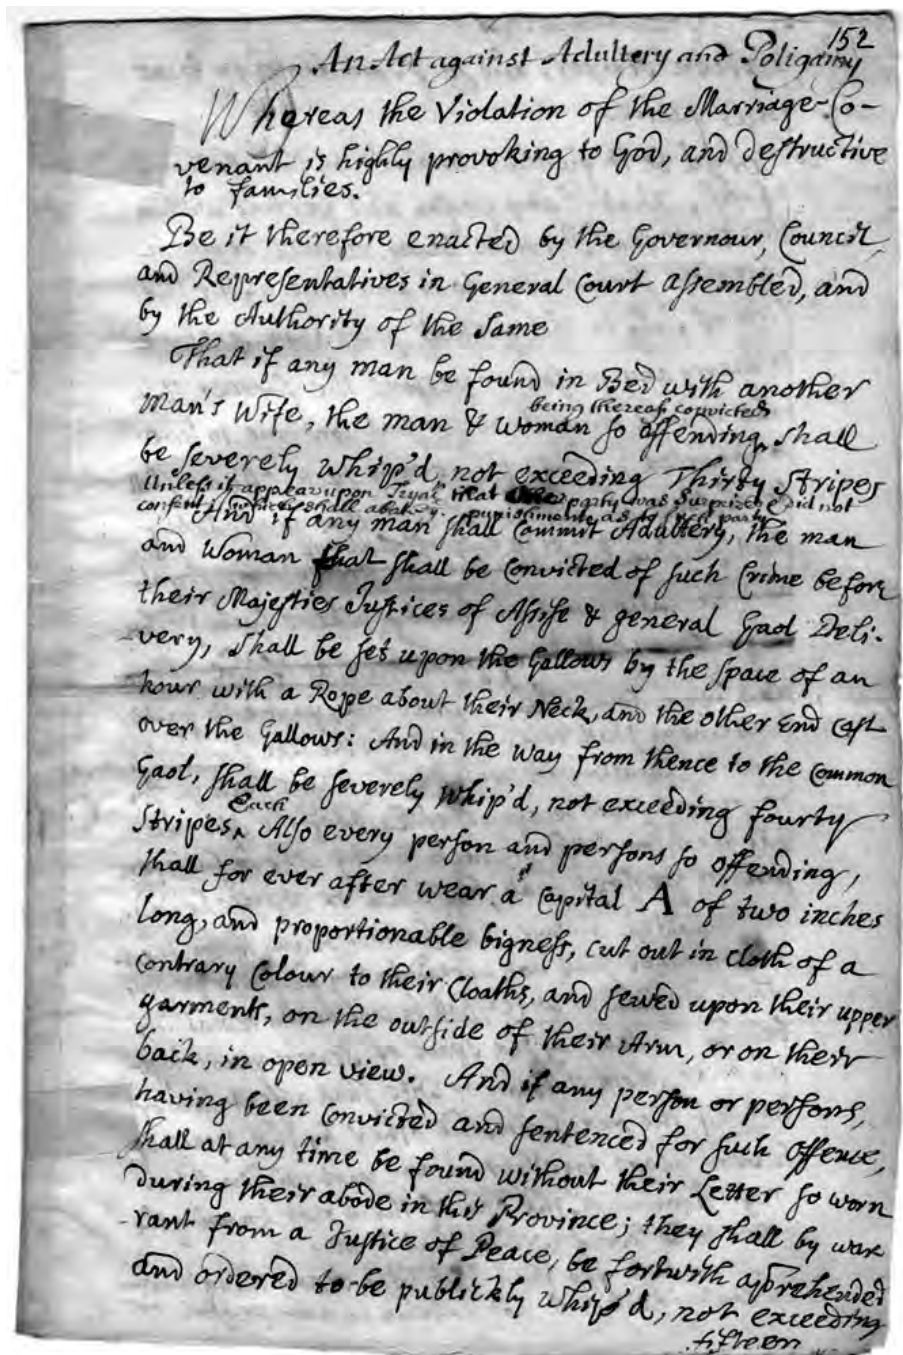 152
An Act against Adultery and Poligamy
Whereas the Violation of the Marriage-Co-
venant is highly provoking to God, and destructive
to families.
Be it therefore enacted by the Governour, Council,
and Representatives in General Court assembled, and
by the Authority of the Same
That if any man be found in Bed with another
Man's Wife, the man & woman so offending,
being thereof convicted
shall
be severely whip'd, not exceeding Thirty Stripes
Unless it appear upon Tryal that one party was surprized & did not
consent, which shall abate of punishment as to that party
And if any man shall Commit Adultery, the man
and woman that shall be Convicted of such Crime before
their Majesties Justices of Assise & general Gaol Deli-
very, shall be set upon the Gallows by the space of an
hour with a Rope about their Neck, and the other End cast
over the Gallows: And in the way from thence to the common
Gaol, shall be severely whip'd, not exceeding fourty
Each
Stripes. Also every person and persons so offending,
shall for ever after wear a Capital A of two inches
long, and proportionable bigness, cut out in cloth of a
contrary Colour to their Cloaths, and sewed upon their upper
garments, on the outside of their Arm, or on their
back, in open view. And if any person or persons,
having been Convicted and sentenced for such Offence,
shall at any time be found without their Letter so worn
during their abode in this Province; they shall by war-
rant from a Justice of Peace, be fortwith apprehended
and ordered to be publickly whip'd, not exceeding
fifteen